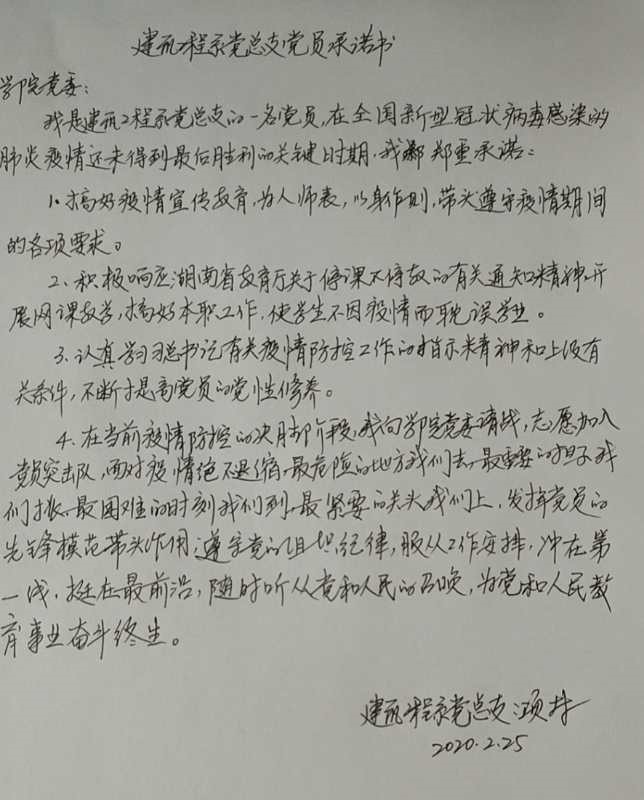 建筑工程系党总支党员承诺书
学院党委:
我是建筑工程系党总支的一名党员,在全国新型冠状病毒感染的
肺炎疫情还未得到最后胜利的关键时期,我 郑重承诺:
1.搞好疫情宣传教育,为人师表,以身作则,带头遵守疫情期间
的各项要求。
2.积极响应湖南省教育厅关于停课不停教的有关通知精神,开
展网课教学,搞好本职工作,使学生不因疫情而耽误学业。
3.认真学习习总书记有关疫情防控工作的指示精神和上级有
关条件,不断提高党员的党性修养。
4.在当前疫情防控的决胜阶段,我向学院党委请战,志愿加入
党员突击队,面对疫情绝不退缩,最危险的地方我们去,最重要的担子我
们扛,最困难的时刻我们到,最紧要的关头我们上,发挥党员的
先锋模范带头作用;遵守党的组织纪律,服从工作安排,冲在第
一线,挺在最前沿,随时听从党和人民的召唤,为党和人民教
育事业奋斗终生。
建筑工程系党总支:项林
2020.2.25